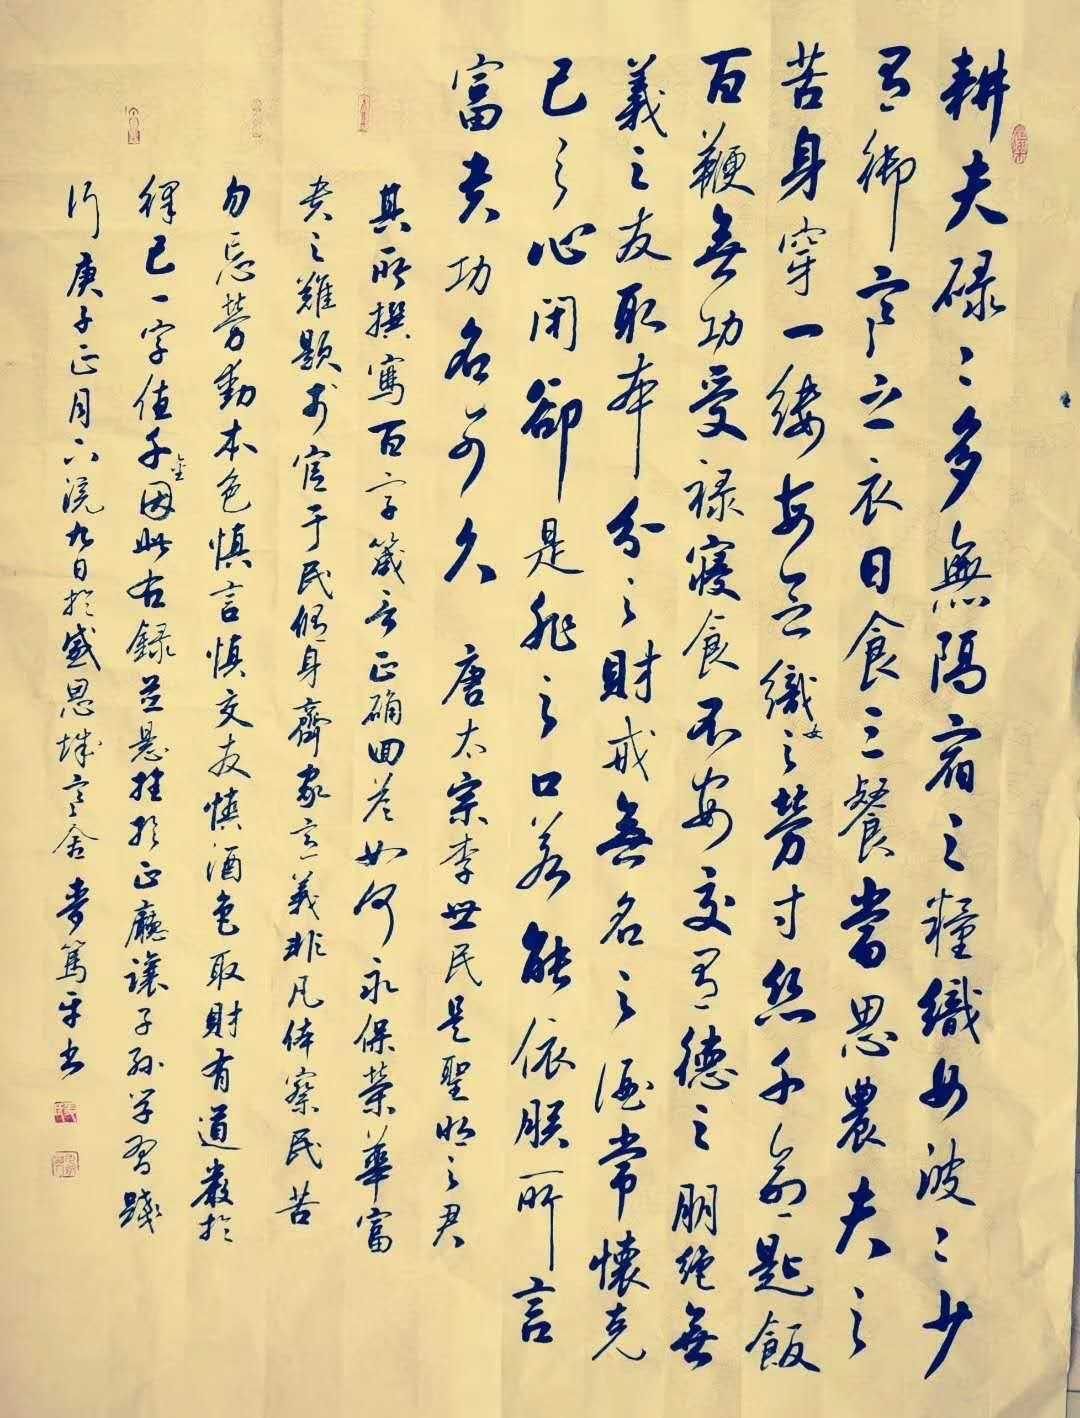 耕夫碌〻多無隔宿之糧織女波〻少
有御寒之衣日食三餐當思農夫之
苦身穿一缕每念織女之勞寸丝千命匙飯
百鞭無功受禄寝食不安交有德之朋绝無
義之友取本分之財戒無名之酒常懷克
己之心闭卻是非之口若能依朕所言
富贵功名可久 唐太宗李世民是聖明之君
其所撰寫百字箴言正确回答如何永保榮華富
贵之難題为官于民修身齊家意義非凡体察民苦
勿忘勞動本色慎言慎交友慎酒色取財有道嚴於
律己一字值千金因此右録並悬挂於正廳讓子孙学習踐
行庚子正月六浣九日於盛恩城寒舍 篤平书